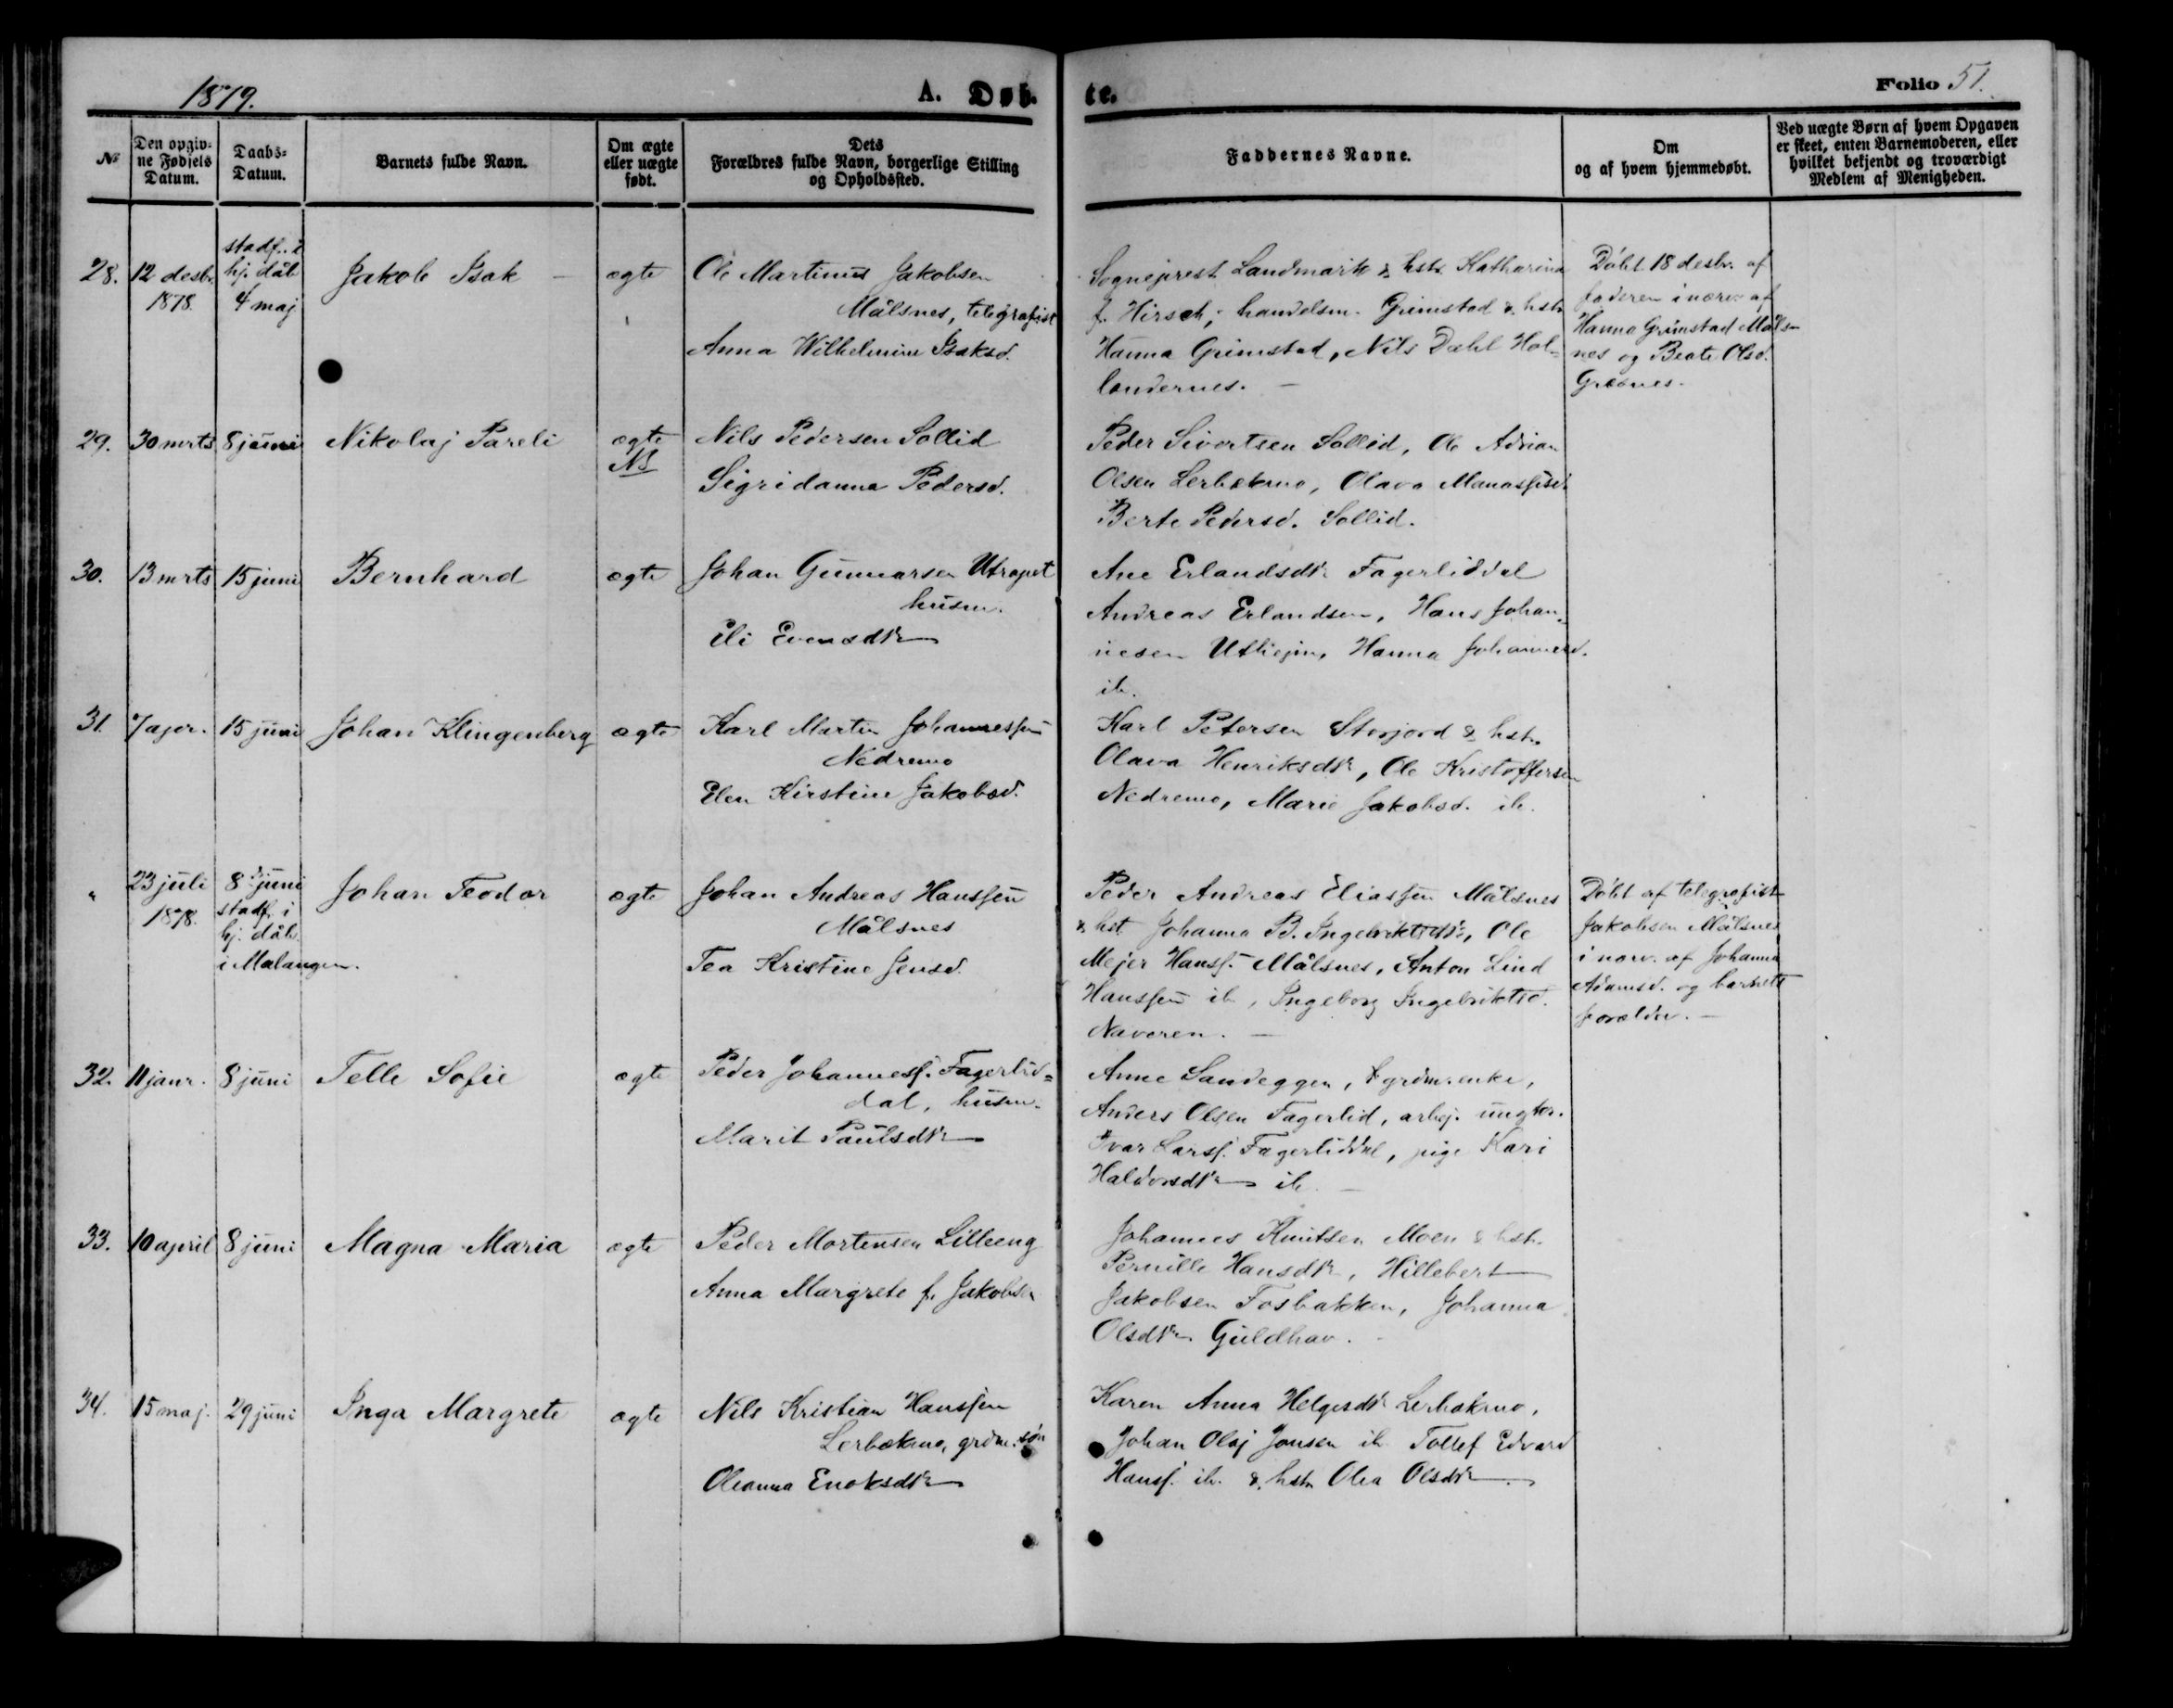 1879.
A. Døb-
te.
Folio 51.
№
Den opgiv-
ne Fødsels
Datum.
Daabs-
Datum.
Barnets fulde Navn.
Om ægte
eller uægte
født.
Dets
Forældres fulde Navn, borgerlige Stilling
og Opholdssted.
Faddernes Navne.
Om
og af hvem hjemmedøbt.
Ved uægte Børn af hvem Opgaven
er skeet, enten Barnemoderen, eller
hvilket bekjendt og troværdigt
Medlem af Menigheden.
28.
12 desbr.
1878.
stadf. i
hj. dåb
4 maj
Jakob Isak —
ægte
Ole Martinus Jakobsen
Målsnes, telegrafist
Anna Wilhelmine Isaksd.
Sogneprest Landmark & hstr Katharina
f. Hirsch; handelsm. Grimstad & hstr
Hanna Grimstad, Nils Dahl Hol-
landernes. —
Døbt 18 desbr. af
faderen i nærv. af
Hanna Grimstad Måls-
nes og Beate Olsd.
Græsnes.
29.
30 mrts
8 juni
Nikolaj Pareli
ægte
NB
Nils Pedersen Sollid
Sigridanna Pedersd.
Peder Sivertsen Sollid, Ole Adrian
Olsen Lerbækmo, Olava
Berte Pedersd. Sollid.
30.
13 mrts
15 juni
Bernhard
ægte
Johan Gunnarsen
husm.
Eli Evensdtr
Ane Erlandsdtr Fagerliddal
Andreas Erlandsen, Hans Johan-
nesen Hanna Johannesd.
ib.
31.
7 apr.
15 juni
Johan Klingenberg
ægte
Karl Martin Johannessen
Nedremo
Elen Kirstine Jakobsd.
Karl Petersen Storjord & hstr.
Olava Henriksdtr, Ole Kristoffersen
Nedremo, Marie Jakobsd. ib.
"
23 juli
1878.
8 juni
stadf. i
hj. dåb
i Malangen.
Johan Teodor
ægte
Johan Andreas Hanssen
Målsnes
Tea Kristine Jensd.
Peder Andreas Eliassen Målsnes
& hst Johanna B. Ingebriktsdtr, Ole
Mejer Hanss. Målsnes, Anton Lind
Hanssen ib, Ingeborg Ingebriktsd.
Naveren. —
Døbt af telegrafist
Jakobsen Målsnes
i nærv. af Johanna
Adamsd. og barnets
forældre. —
32.
11 janr.
8 juni
Telle Sofie
ægte
Peder Johanness. Fagerlid-
dal, husm.
Marit Paulsdtr
Anne Sandeggen, grdm.enke,
Anders Olsen Fagerlid, arbej. ungkr.
Ivar Larss. Fagerliddal, pige Kari
Haldorsdtr ib. —
33.
10 april
8 juni
Magna Maria
ægte
Peder Mortensen Lilleeng
Anna Margrete f. Jakobsen
Johannes Knutsen Moen & hstr.
Pernille Hansdtr, Hillebert
Jakobsen Fosbakken, Johanna
Olsdtr Guldhav.
34.
15 maj.
29 juni
Inga Margrete
ægte
Nils Kristian Hanssen
Lerbækmo, grdm. søn
Oleanna Enoksdtr
Karen Anna Helgesdtr Lerbækmo,
Johan Olaj Jonsen ib. Tollef Edvard
Hanss. ib. & hstr Olea Olsdtr.